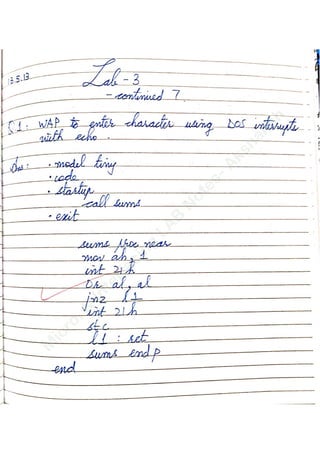 13.5.13
Lab - 3
- continued 7.
Q.1: WAP to enter character using DOS interrupts
with echo.
Ans: .model tiny
.code
.startup
call sums
.exit
sums proc near
mov ah, 1
int 21h
or al, al
jnz l1
int 21h
stc
l1 : ret
sums endp
end
LAB Notes-